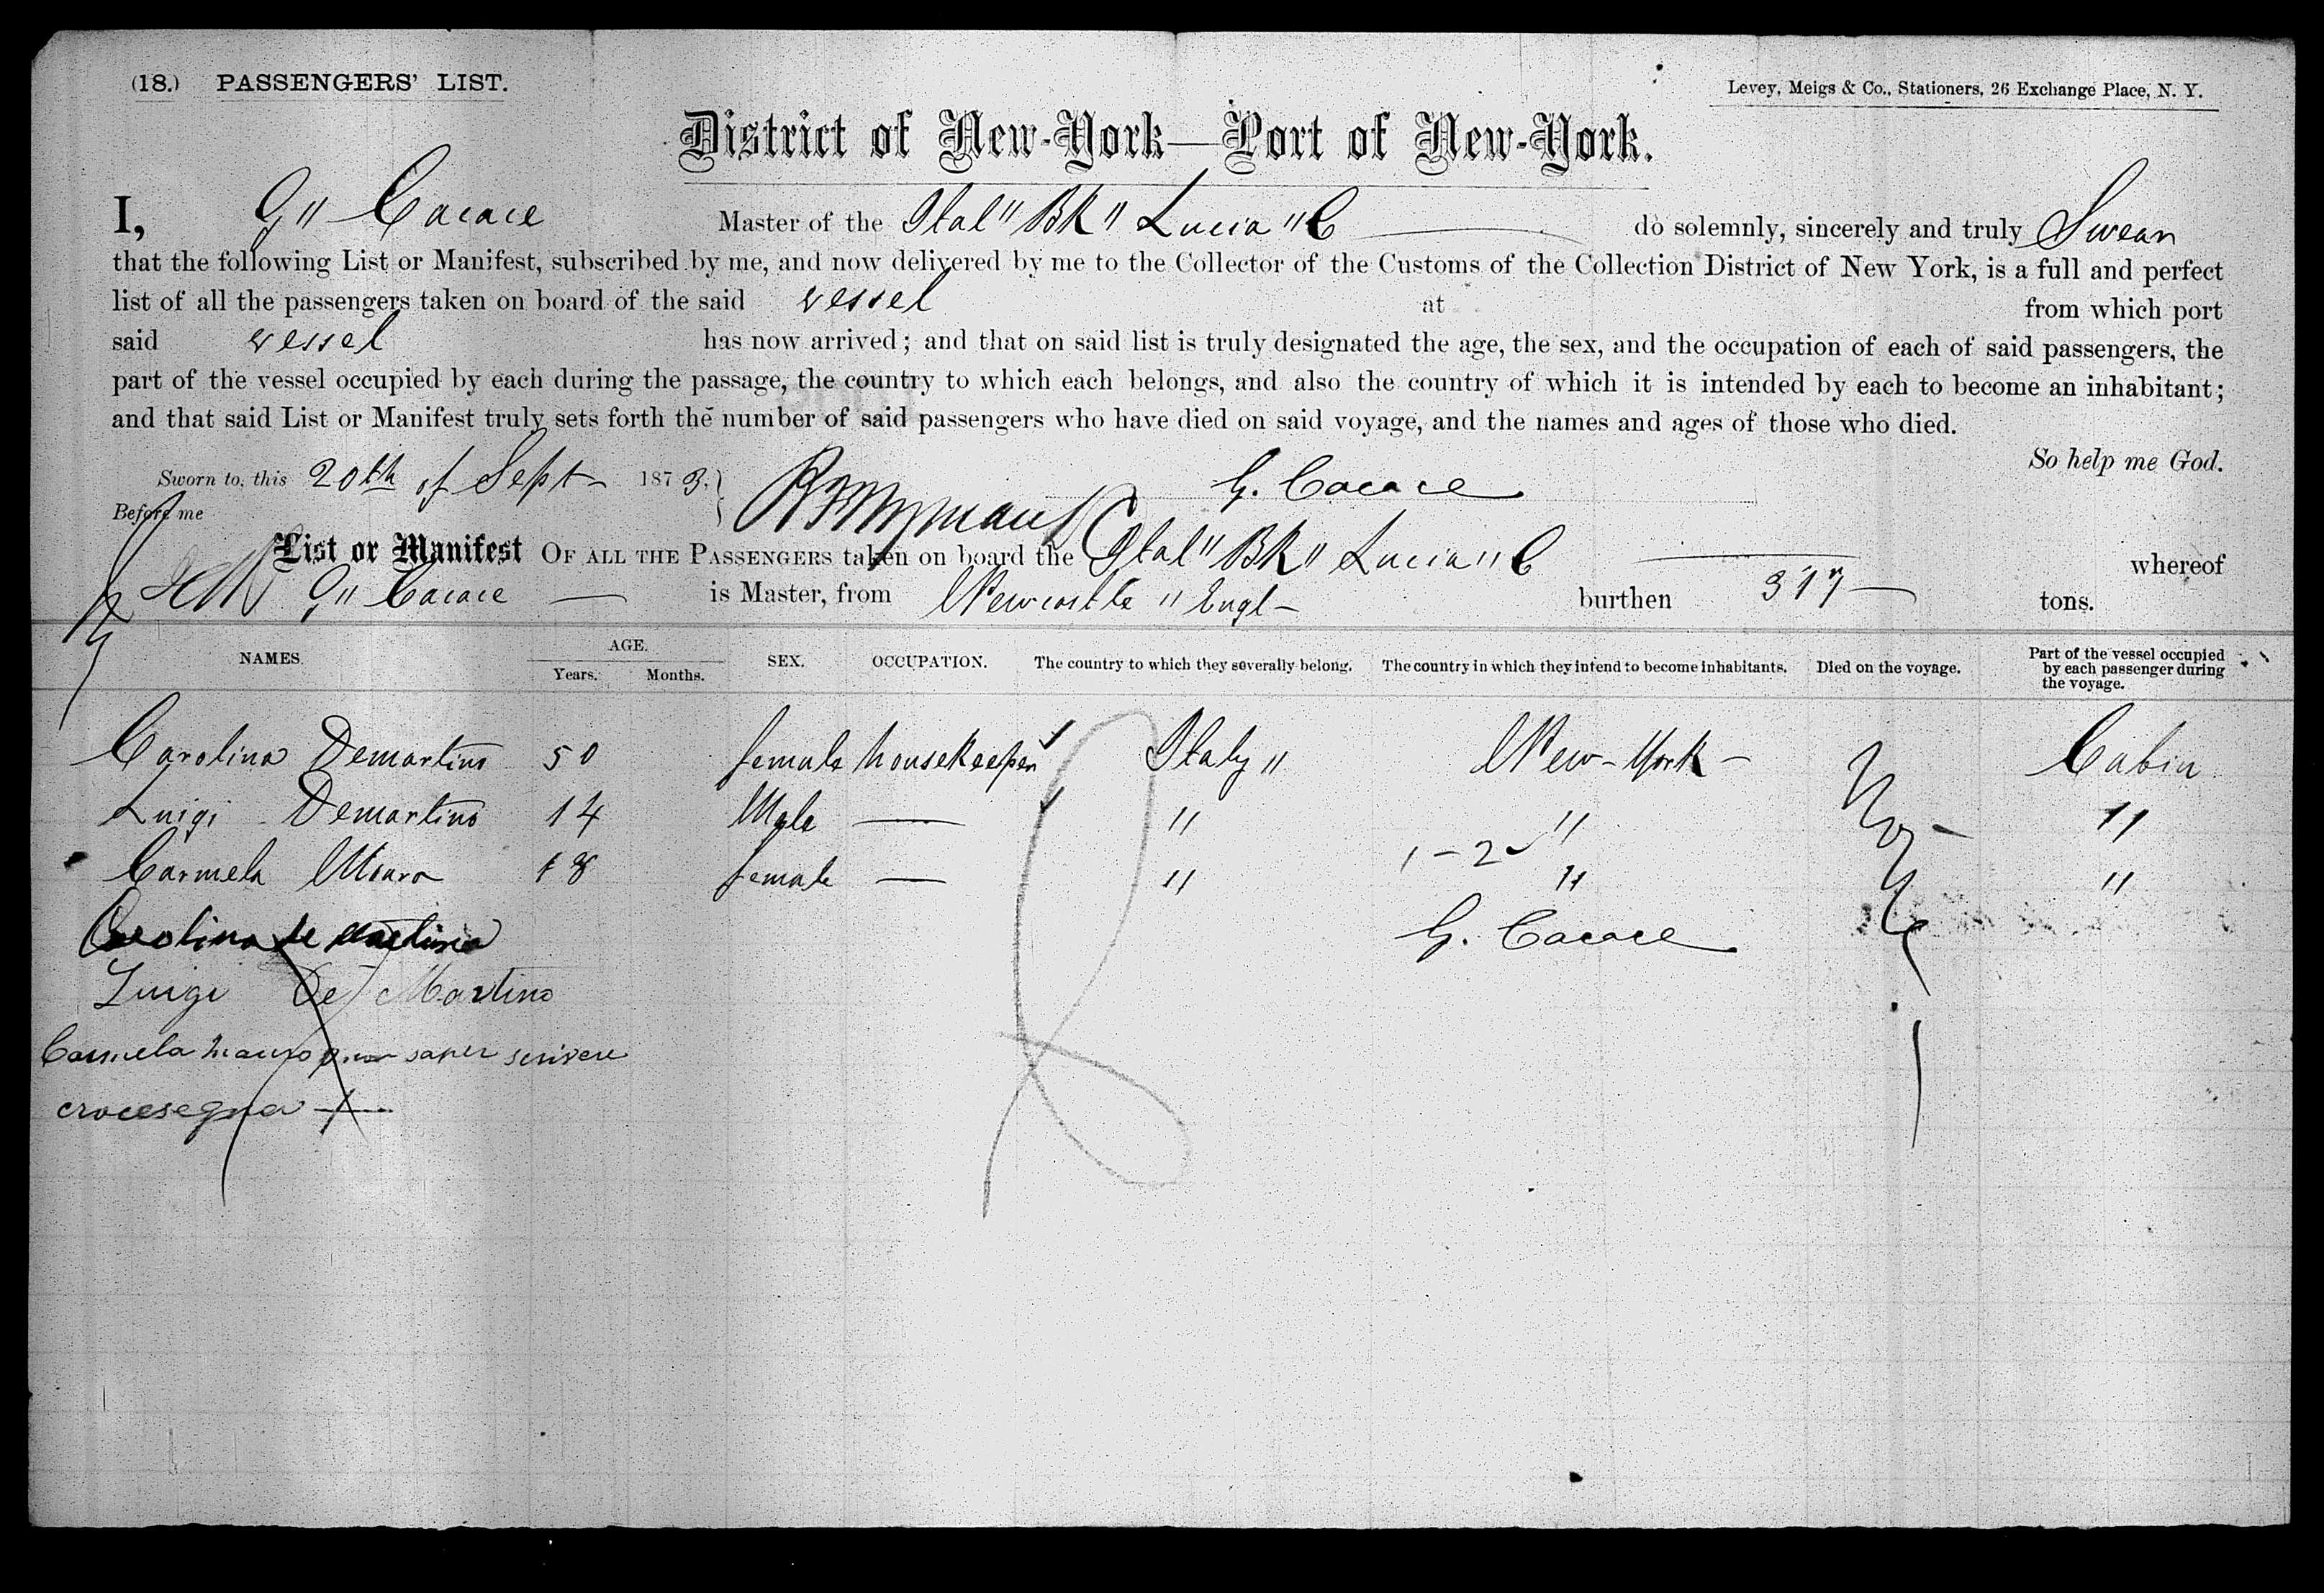 (18.) PASSENGERS' LIST.
Levey, Meigs & Co., Stationers, 26 Exchange Place, N. Y.
District of New-York—Port of New-York.
I, G" Cacace Master of the Ital" BK" Lucia "C do solemnly, sincerely and truly Swear
that the following List or Manifest, subscribed by me, and now delivered by me to the Collector of the Customs of the Collection District of New York, is a full and perfect
list of all the passengers taken on board of the said vessel at from which port
said vessel has now arrived; and that on said list is truly designated the age, the sex, and the occupation of each of said passengers, the
part of the vessel occupied by each during the passage, the country to which each belongs, and also the country of which it is intended by each to become an inhabitant;
and that said List or Manifest truly sets forth the number of said passengers who have died on said voyage, and the names and ages of those who died.
So help me God.
Sworn to, this 20th of Sept 1873. G. Cacace
Before me
List or Manifest OF ALL THE PASSENGERS taken on board the Ital" BK" Lucia "C whereof
G" Cacace is Master, from Newcastle " Engl burthen tons.
NAMES. AGE. Years. Months. SEX. OCCUPATION. The country to which they severally belong. The country in which they intend to become inhabitants. Died on the voyage. Part of the vessel occupied by each passenger during the voyage.
Carolina Demartino 50 female housekeeper Italy " New-York - Cabin
Luigi Demartino 14 Male — " " "
1-2
Carmela Mauro 18 female — " " "
Carolina de martino G. Cacace
Luigi De Martino
Carmela Mauro saper scrivere
crocesegna +